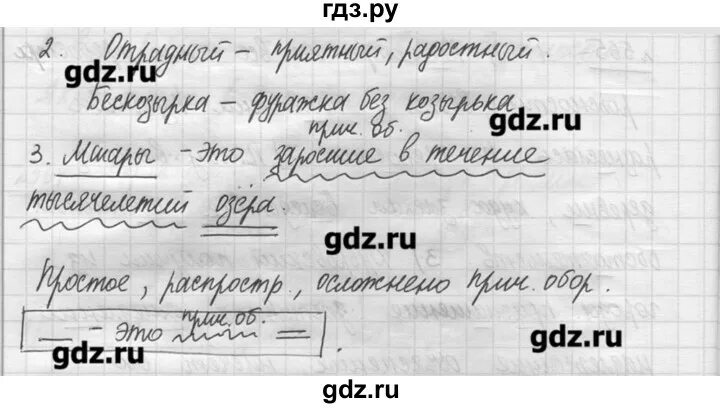 гдз.ру
2. Отрадный – приятный, радостный.
gdz.ru
Бескозырка – фуражка без козырька
gdz.ru
прич. об.
3. Мшары – это заросшие в течение
тысячелетий озёра
gdz.ru
Простое, распростр., осложнено прич. обор.
прич. об.
– это
gdz.ru
gdz.ru
gdz.ru